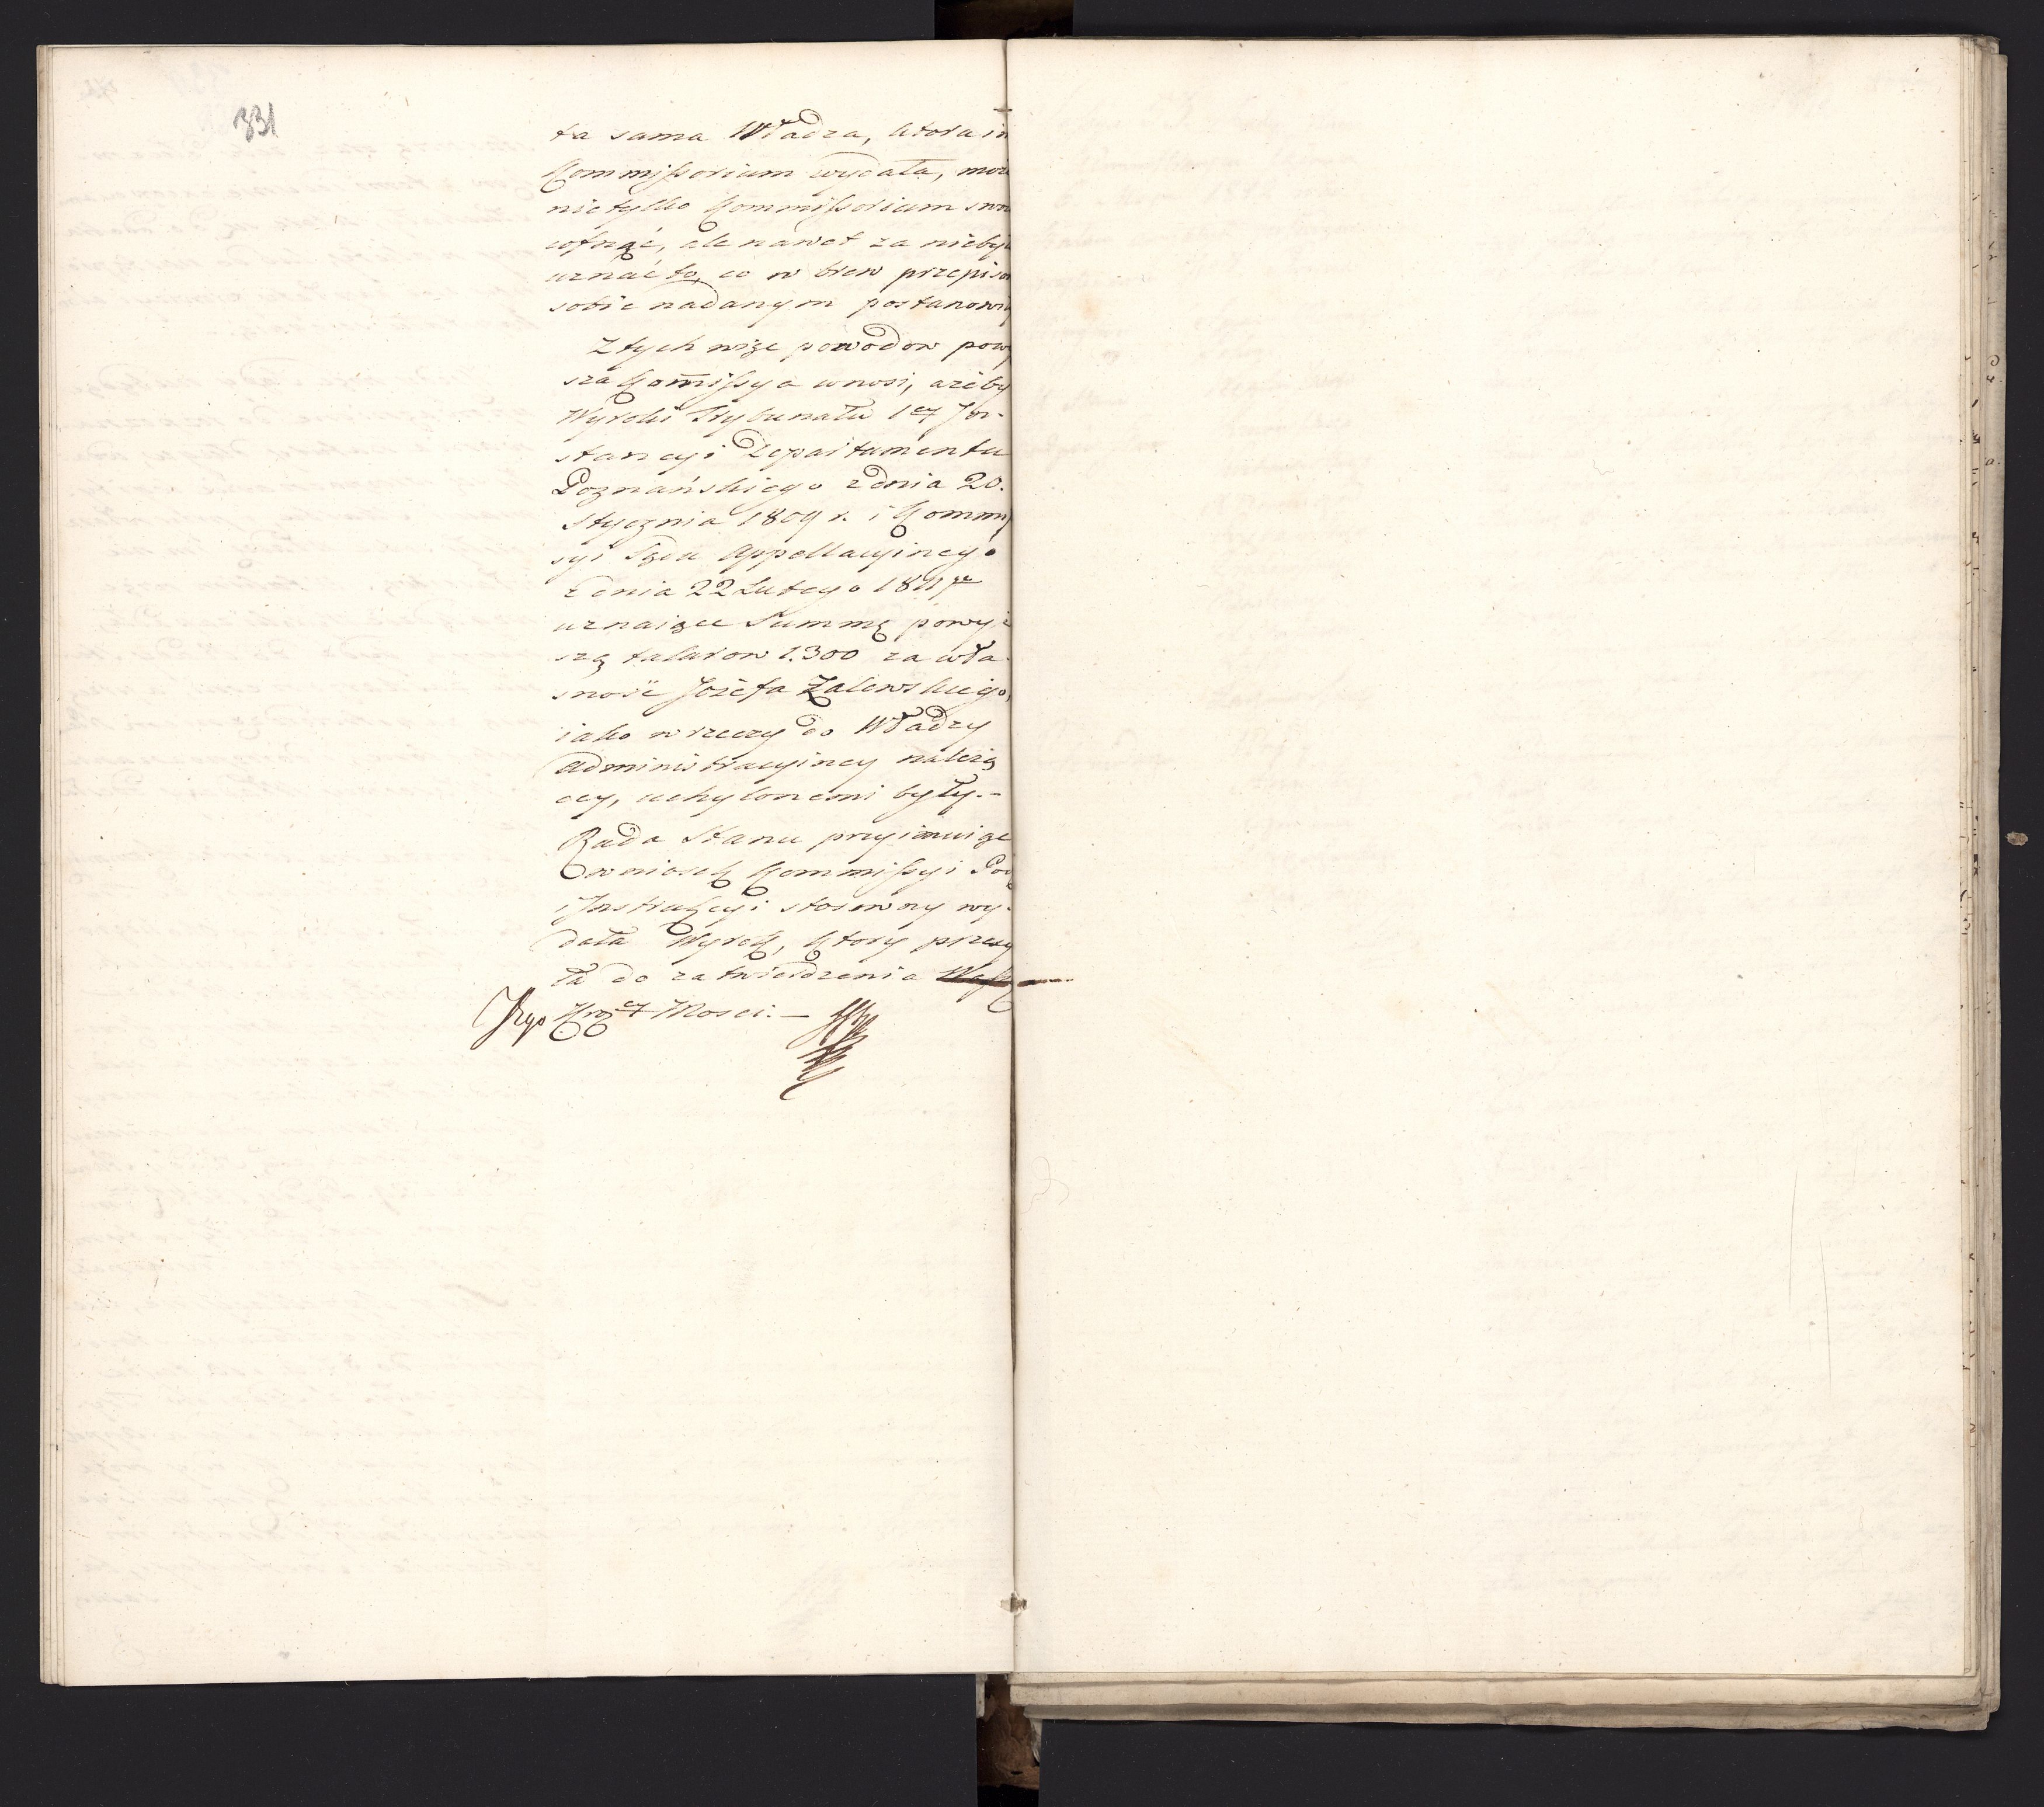 331
ta sama Władza, ktora in
Kommissorium wydała, moż
nietylko Kommissorium swo
cofnąć, ale nawet za nieby
uznać to, co w brew przepiso
sobie nadanym postanowi
Z tych więc powodow powy
sza Kom̃issya wnosi, ażeby
Wyroki Trybunału 1ey Jn-
stancyi Departamentu
Poznańskiego z dnia 20.
Stycznia 1809 r. i Kommi
syi Sądu Appellacyinego
z dnia 22 Lutego 1811
uznaiące Summę powyż
szą talarow 1.300 za wła-
sność Jozefa Zalewskiego,
iako w rzeczy do Władzy
Administracyiney należą
cey, uchylonemi były.-
Rada Stanu przyimuiąc
wniosek Kommissyi Pod
i Jnstrukcyi stosowny wy-
dała Wyrok, ktory przesy
ła do zatwierdzenia
Jego Kroley Mosci. —